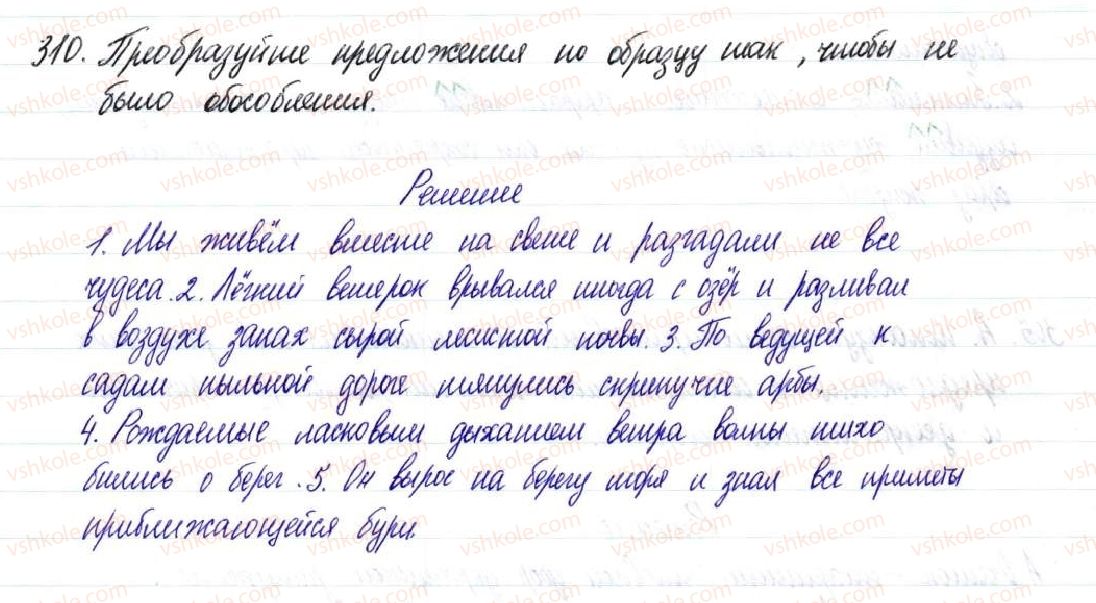 310. Преобразуйте предложения по образцу так, чтобы не
было обособления.
Решение
1. Мы живём вместе на свете и разгадали не все
чудеса. 2. Лёгкий ветерок врывался иногда с озёр и разливал
в воздухе запах сырой лесистой почвы. 3. По ведущей к
садам пыльной дороге тянулись скрипучие арбы.
4. Рождаемые ласковым дыханием ветра волны тихо
бились о берег. 5. Он вырос на берегу моря и знал все приметы
приближающейся бури.